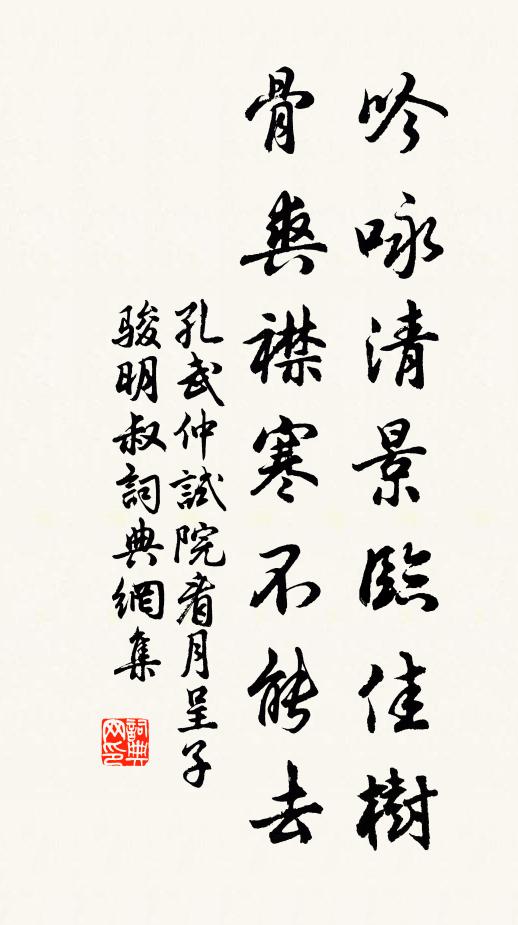 吟咏清景臨佳樹
骨爽襟寒不能去
孔武仲試院看月呈子
駿明叔詞典網集
詞典網印